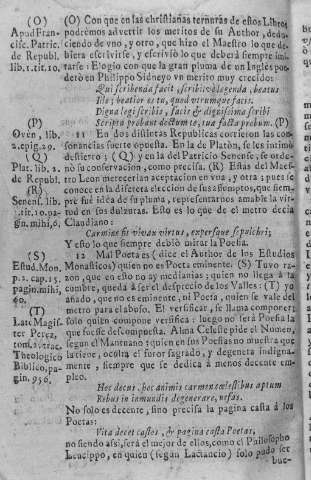 (O)
Apud Francisc. Patric. de Republ. lib. 1. tit. 10.
(P)
Ovvên, lib. 2. epig. 29.
(Q)
Plat. lib. 2. de Republ.
(R)
Senens. lib. 1. tit. 10. pagin. mihi, 6.
(S)
Estud. Mon. p. 2. cap. 15. pagin. mihi, 60.
(T)
Lat. Magister Perez, tom. 2. trac. Theologico Biblico, pagin. 956.
(O) Con que en las christianas ternuras de estos Libros
podremos advertir los meritos de su Author, dedu-
ciendo de vno, y otro, que hizo el Maestro lo que de-
biera escrivirse, y escriviò lo que deberà siempre imi-
tarse: Elogio con que la gran pluma de un Ingles pon-
derò en Philippo Sidneyo vn merito muy crecido:
Qui scribenda facit, scribitve legenda, beatus
Ille; beatior es tu, quod vtrumque facis.
Digna legi scribis, facis & dignissima scribi
Scripta probant doctum te, tua facta probum. (P)
11 En dos distintas Republicas corrieron las con-
sonancias suerte opuesta. En la de Platòn, se les intimò
destierro; (Q) y en la del Patricio Senense, se orde-
nò su conservacion, como precisa. (R) Estas del Maes-
tro Leon merecerian aceptacion en vna, y otra; pues se
conoce en la discreta eleccion de sus assumptos, que siem-
pre fuè idea de su pluma, representarnos amable la vir-
tud en sus dulzuras. Esto es lo que de el metro decia
Claudiano:
Carmine fit vivax virtus, expersque sepulchri;
Y esto lo que siempre debiò mirar la Poesia.
12 Mal Poeta es (dice el Author de los Estudios
Monasticos) quien no es Poeta eminente. (S) Tuvo ra-
zon, que en ello no ay medianias; quien no llega à la
cumbre, queda à ser el desprecio de los Valles: (T) yo
añado, que no es eminente, ni Poeta, quien se vale del
metro para el abuso. El versificar, se llama componer;
solo quien compone versifica: luego no serà Poesia la
que fuesse descompuesta. Alma Celeste pide el Numen,
segun el Mantuano; quien en sus Poesias no muestra que
la tiene, oculta el foror sagrado, y degenera indigna-
mente, siempre que se dedica à menos decente em-
pleo.
Hoc decus, hoc animis carmen cœlestibus aptum
Rebus in inmundis degenerare, nefas.
No solo es decente, sino precisa la pagina casta à los
Poetas:
Vita decet castos, & pagina casta Poetas,
no siendo assi, serà el mejor de ellos, como el Philosopho
Leucippo, en quien (segun Lactancio) solo pudo ser
bue-